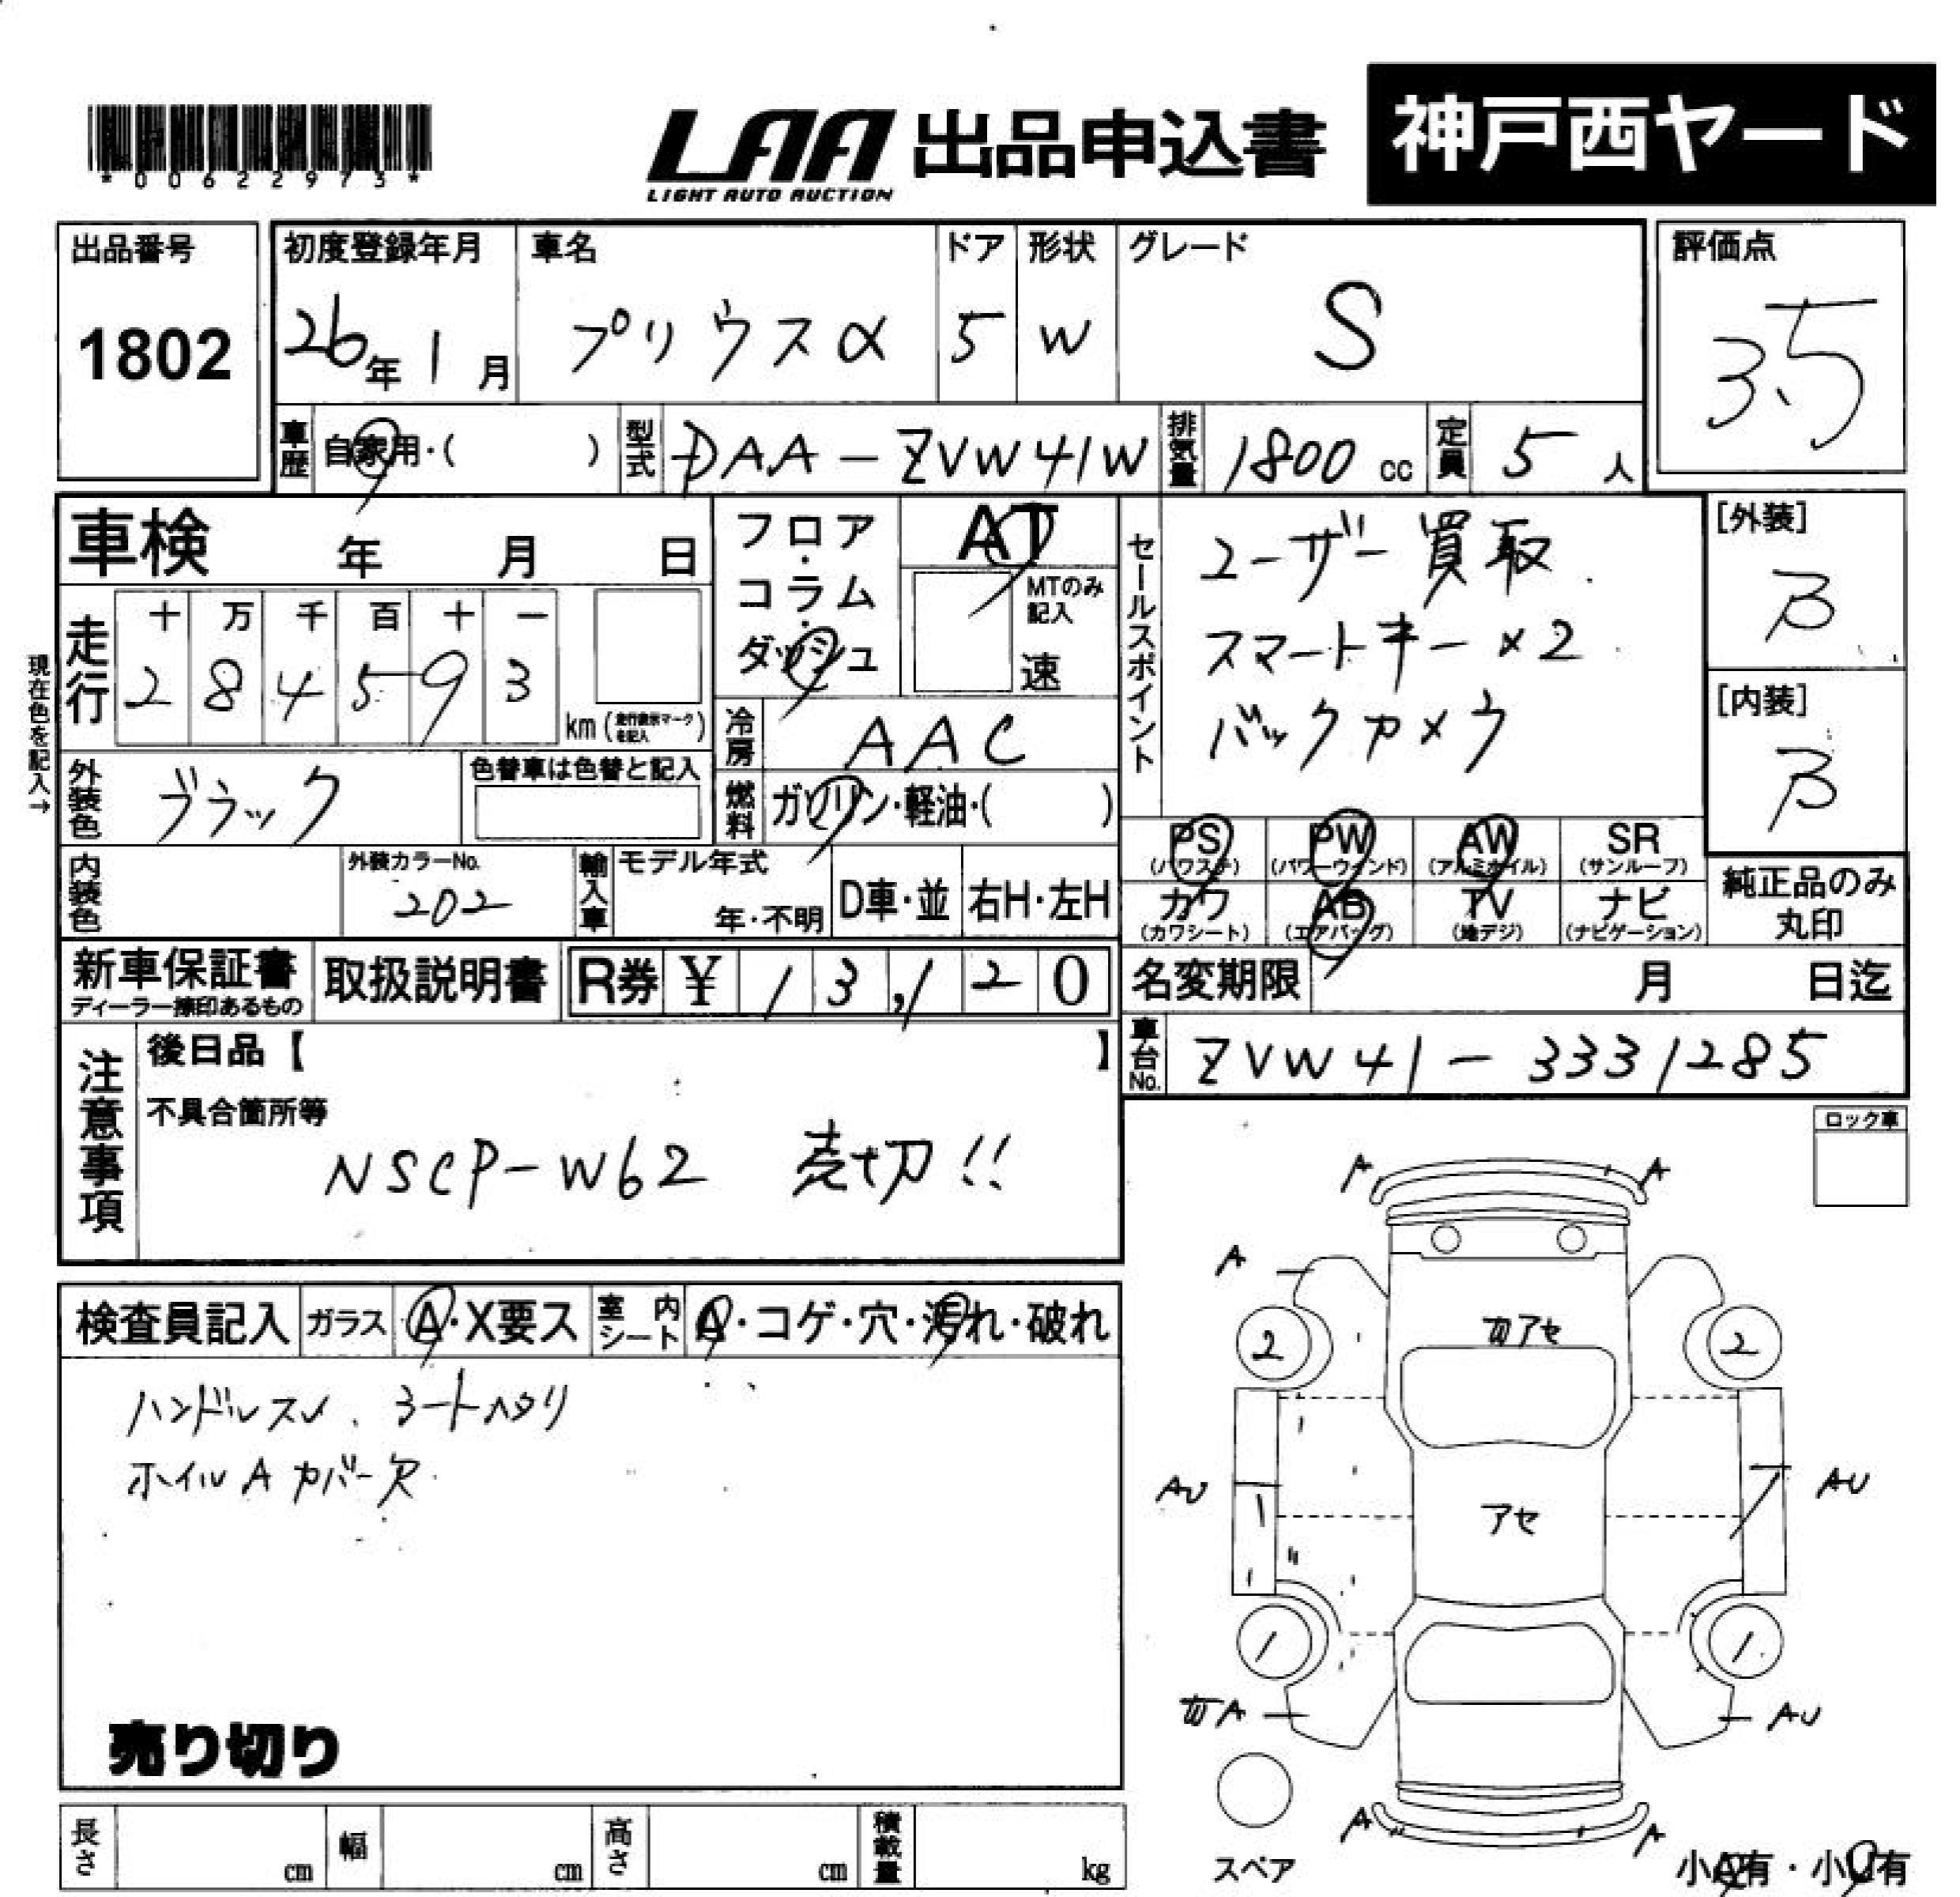 *00622973*
LAA 出品申込書 神戸西ヤード
LIGHT AUTO AUCTION
出品番号 初度登録年月 車名 ドア 形状 グレード 評価点
1802 26年1月 プリウスα 5 W S 3.5
車歴 自家用・( ) 型式 DAA-ZVW41W 排気量 1800 cc 定員 5 人
車検 年 月 日
フロア・コラム・ダッシュ
AT
MTのみ記入
速
セールスポイント
ユーザー買取
スマートキー×2
バックカメラ
[外装]
B
[内装]
B
現在色を記入→
走行 十 万 千 百 十 一
2 8 4 5 9 3
km(走行表示マークを記入)
冷房 AAC
外装色 ブラック 色替車は色替と記入
燃料 ガソリン・軽油・( )
PS PW AW SR
(パワステ) (パワーウィンド) (アルミホイル) (サンルーフ)
カワ AB TV ナビ
(カワシート) (エアバッグ) (地デジ) (ナビゲーション)
純正品のみ
丸印
内装色 外装カラーNo. 202 輸入車 モデル年式 年・不明 D車・並 右H・左H
新車保証書 取扱説明書 R券 ¥ 13,120
ディーラー捺印あるもの
名変期限 月 日迄
車台No. ZVW41-3331285
注意事項
後日品【 】
不具合箇所等
NSCP-W62 売切!!
ロック車
検査員記入 ガラス A・X要ス 室内シート A・コゲ・穴・汚れ・破れ
ハンドルスレ、シートヘタリ
ホイルA カバー欠
売り切り
A A
A
2 2
アセ
AU AU
アセ
1 1
A AU
A A
スペア
小A有・小U有
長さ cm 幅 cm 高さ cm 積載量 kg